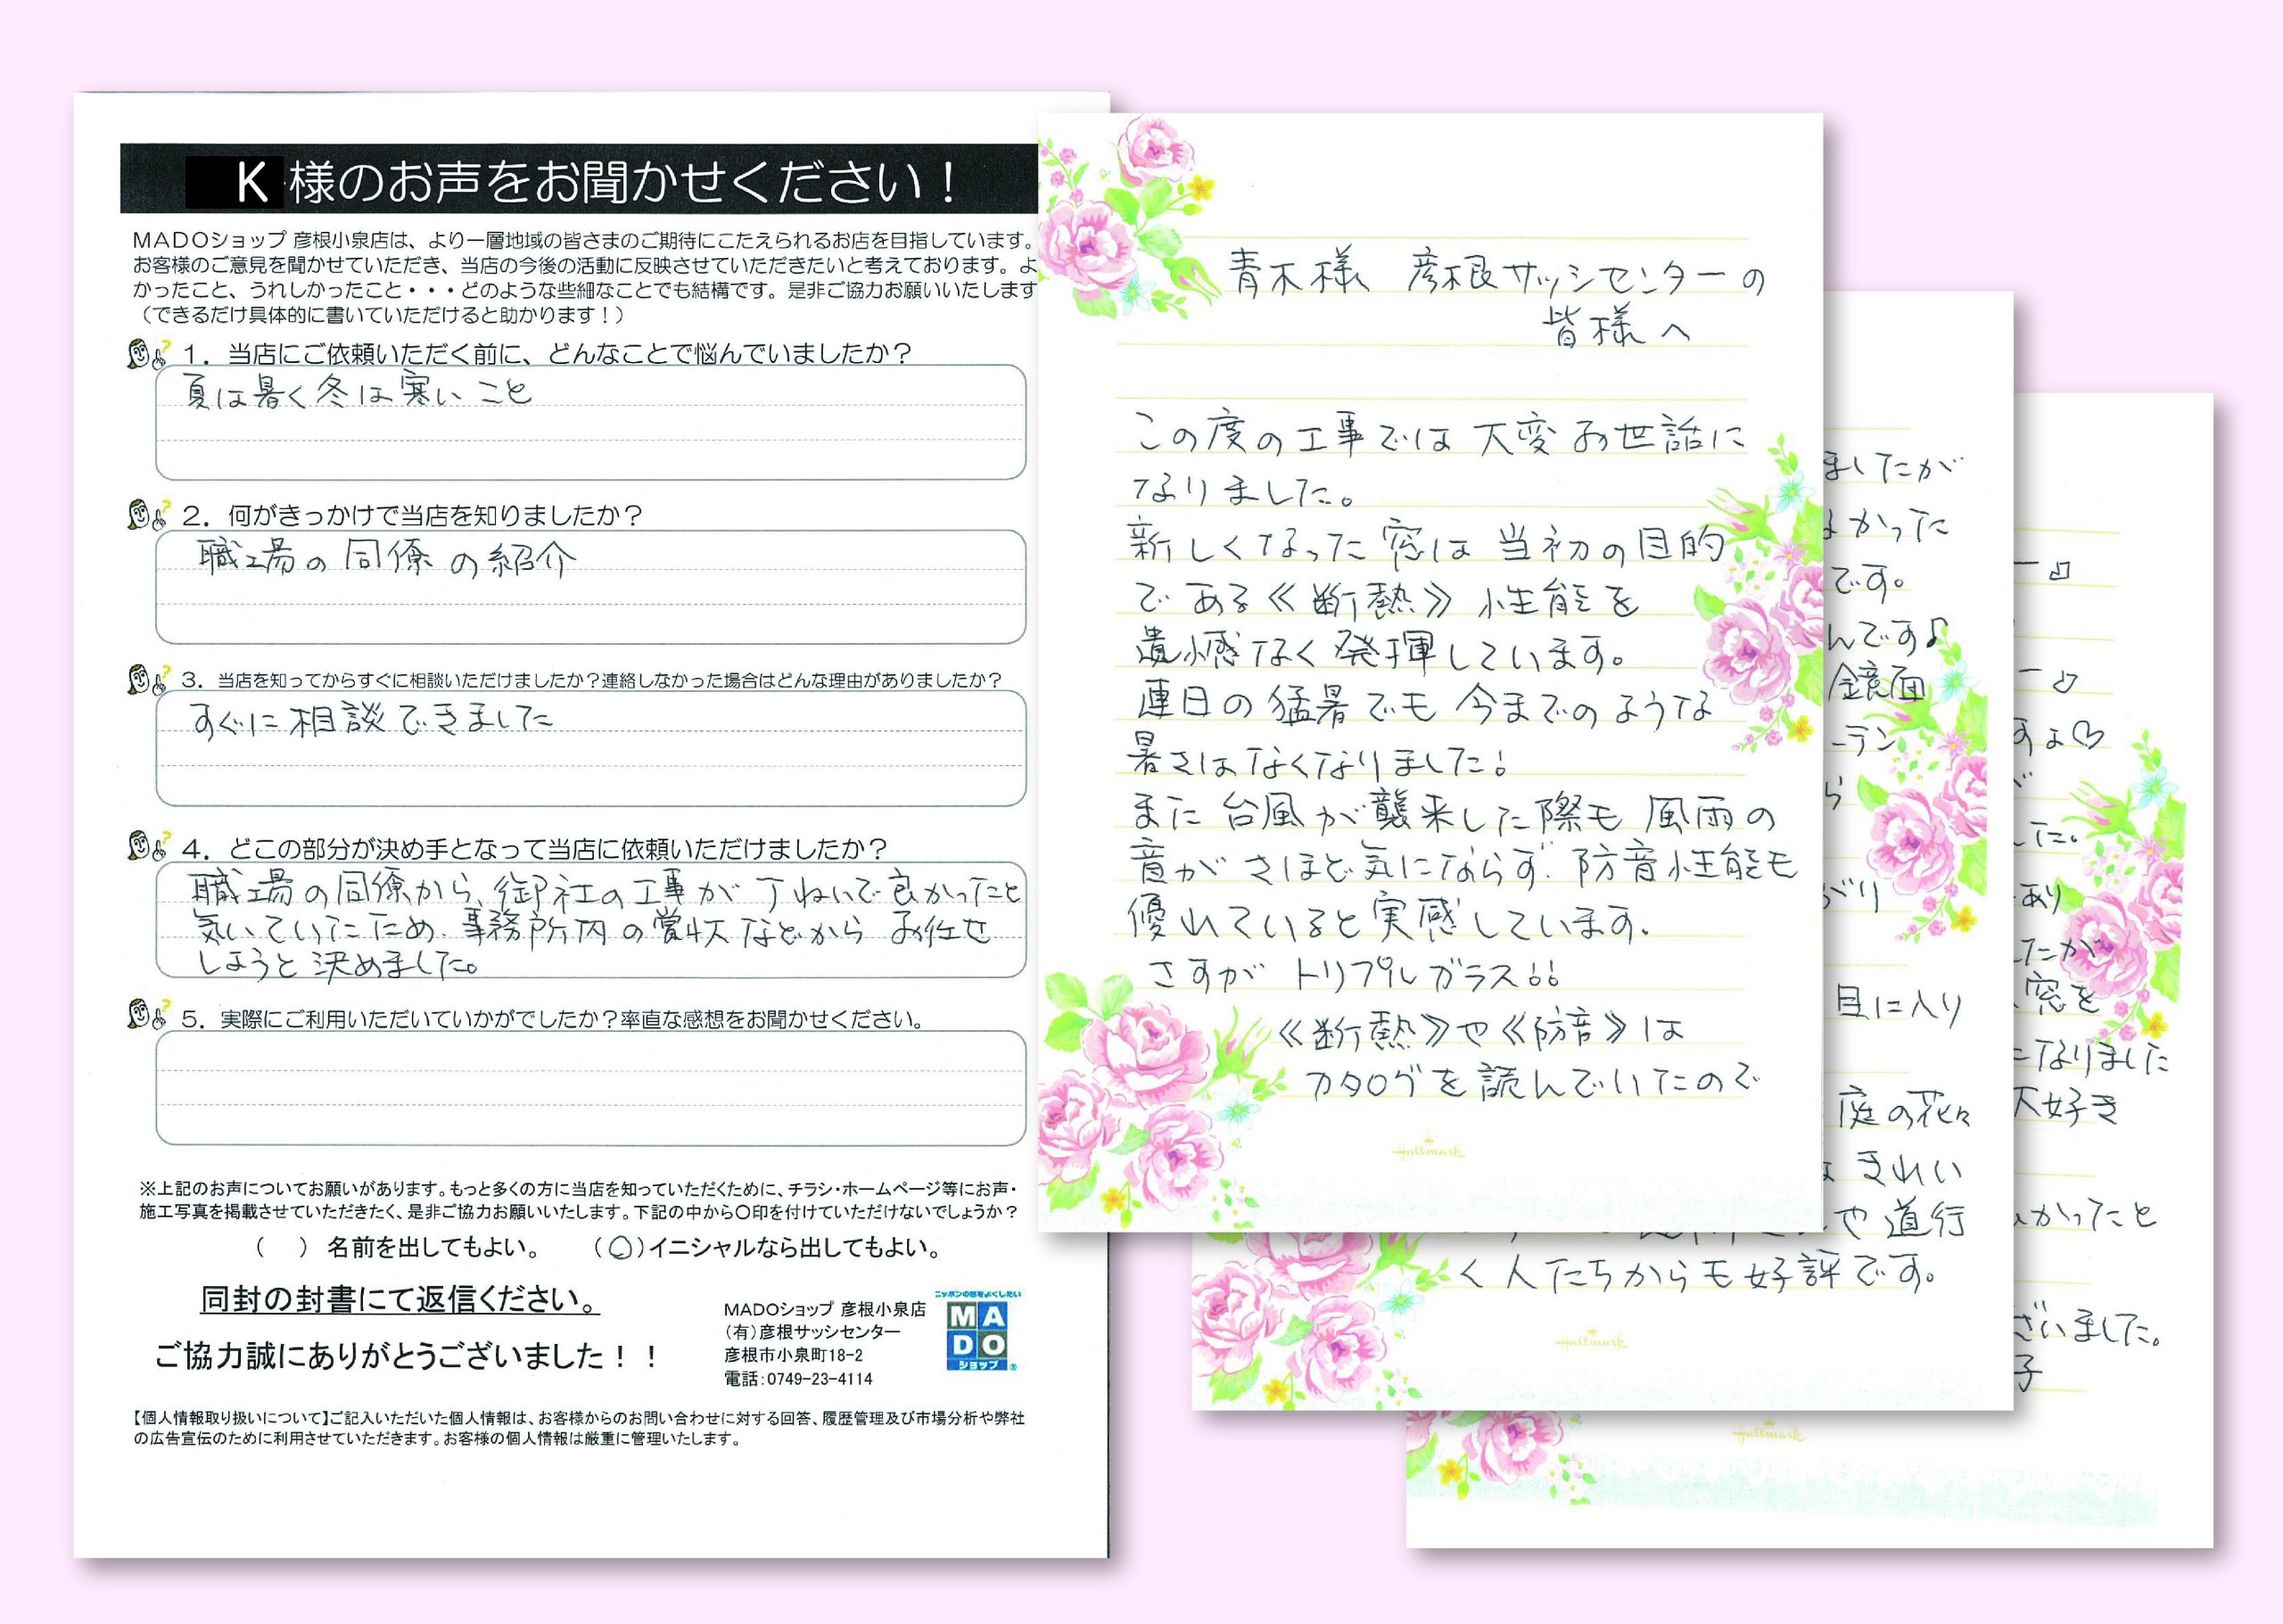 K 様のお声をお聞かせください！
MADOショップ 彦根小泉店は、より一層地域の皆さまのご期待にこたえられるお店を目指しています。
お客様のご意見を聞かせていただき、当店の今後の活動に反映させていただきたいと考えております。よ
かったこと、うれしかったこと・・・どのような些細なことでも結構です。是非ご協力お願いいたします
（できるだけ具体的に書いていただけると助かります！）
1．当店にご依頼いただく前に、どんなことで悩んでいましたか？
夏は暑く冬は寒いこと
2．何がきっかけで当店を知りましたか？
職場の同僚の紹介
3．当店を知ってからすぐに相談いただけましたか？連絡しなかった場合はどんな理由がありましたか？
すぐに相談できました
4．どこの部分が決め手となって当店に依頼いただけましたか？
職場の同僚から、御社の工事が丁ねいで良かったこと
気いていたため、事務所内の賞状などから お任せ
しようと決めました。
5．実際にご利用いただいていかがでしたか？率直な感想をお聞かせください。
※上記のお声についてお願いがあります。もっと多くの方に当店を知っていただくために、チラシ・ホームページ等にお声・
施工写真を掲載させていただきたく、是非ご協力お願いいたします。下記の中から〇印を付けていただけないでしょうか？
（　）名前を出してもよい。　（〇）イニシャルなら出してもよい。
同封の封書にて返信ください。
ご協力誠にありがとうございました！！
MADOショップ 彦根小泉店
(有)彦根サッシセンター
彦根市小泉町18-2
電話：0749-23-4114
ニッポンの窓をよくしたい
MA
DO
ショップ
【個人情報取り扱いについて】ご記入いただいた個人情報は、お客様からのお問い合わせに対する回答、履歴管理及び市場分析や弊社
の広告宣伝のために利用させていただきます。お客様の個人情報は厳重に管理いたします。
青木様　彦根サッシセンターの
皆様へ
この度の工事では 大変お世話に
なりました。
新しくなった窓は 当初の目的
である≪断熱≫性能を
遺憾なく発揮しています。
連日の猛暑でも 今までのような
暑さはなくなりました！
また 台風が襲来した際も 風雨の
音がさほど気にならず、防音性能も
優れていると実感しています。
さすが トリプルガラス！！
≪断熱≫や≪防音≫は
カタログを読んでいたので
Hallmark
ましたが
よかった
です。
んです♪
鏡面
ーテン
ら
がり
目に入り
庭の花々
きれい
や 道行
く人たちからも好評です。
Hallmark
すよ♡
した。
あり
したが
窓を
になりました
大好き
かったこと
ざいました。
子
Hallmark